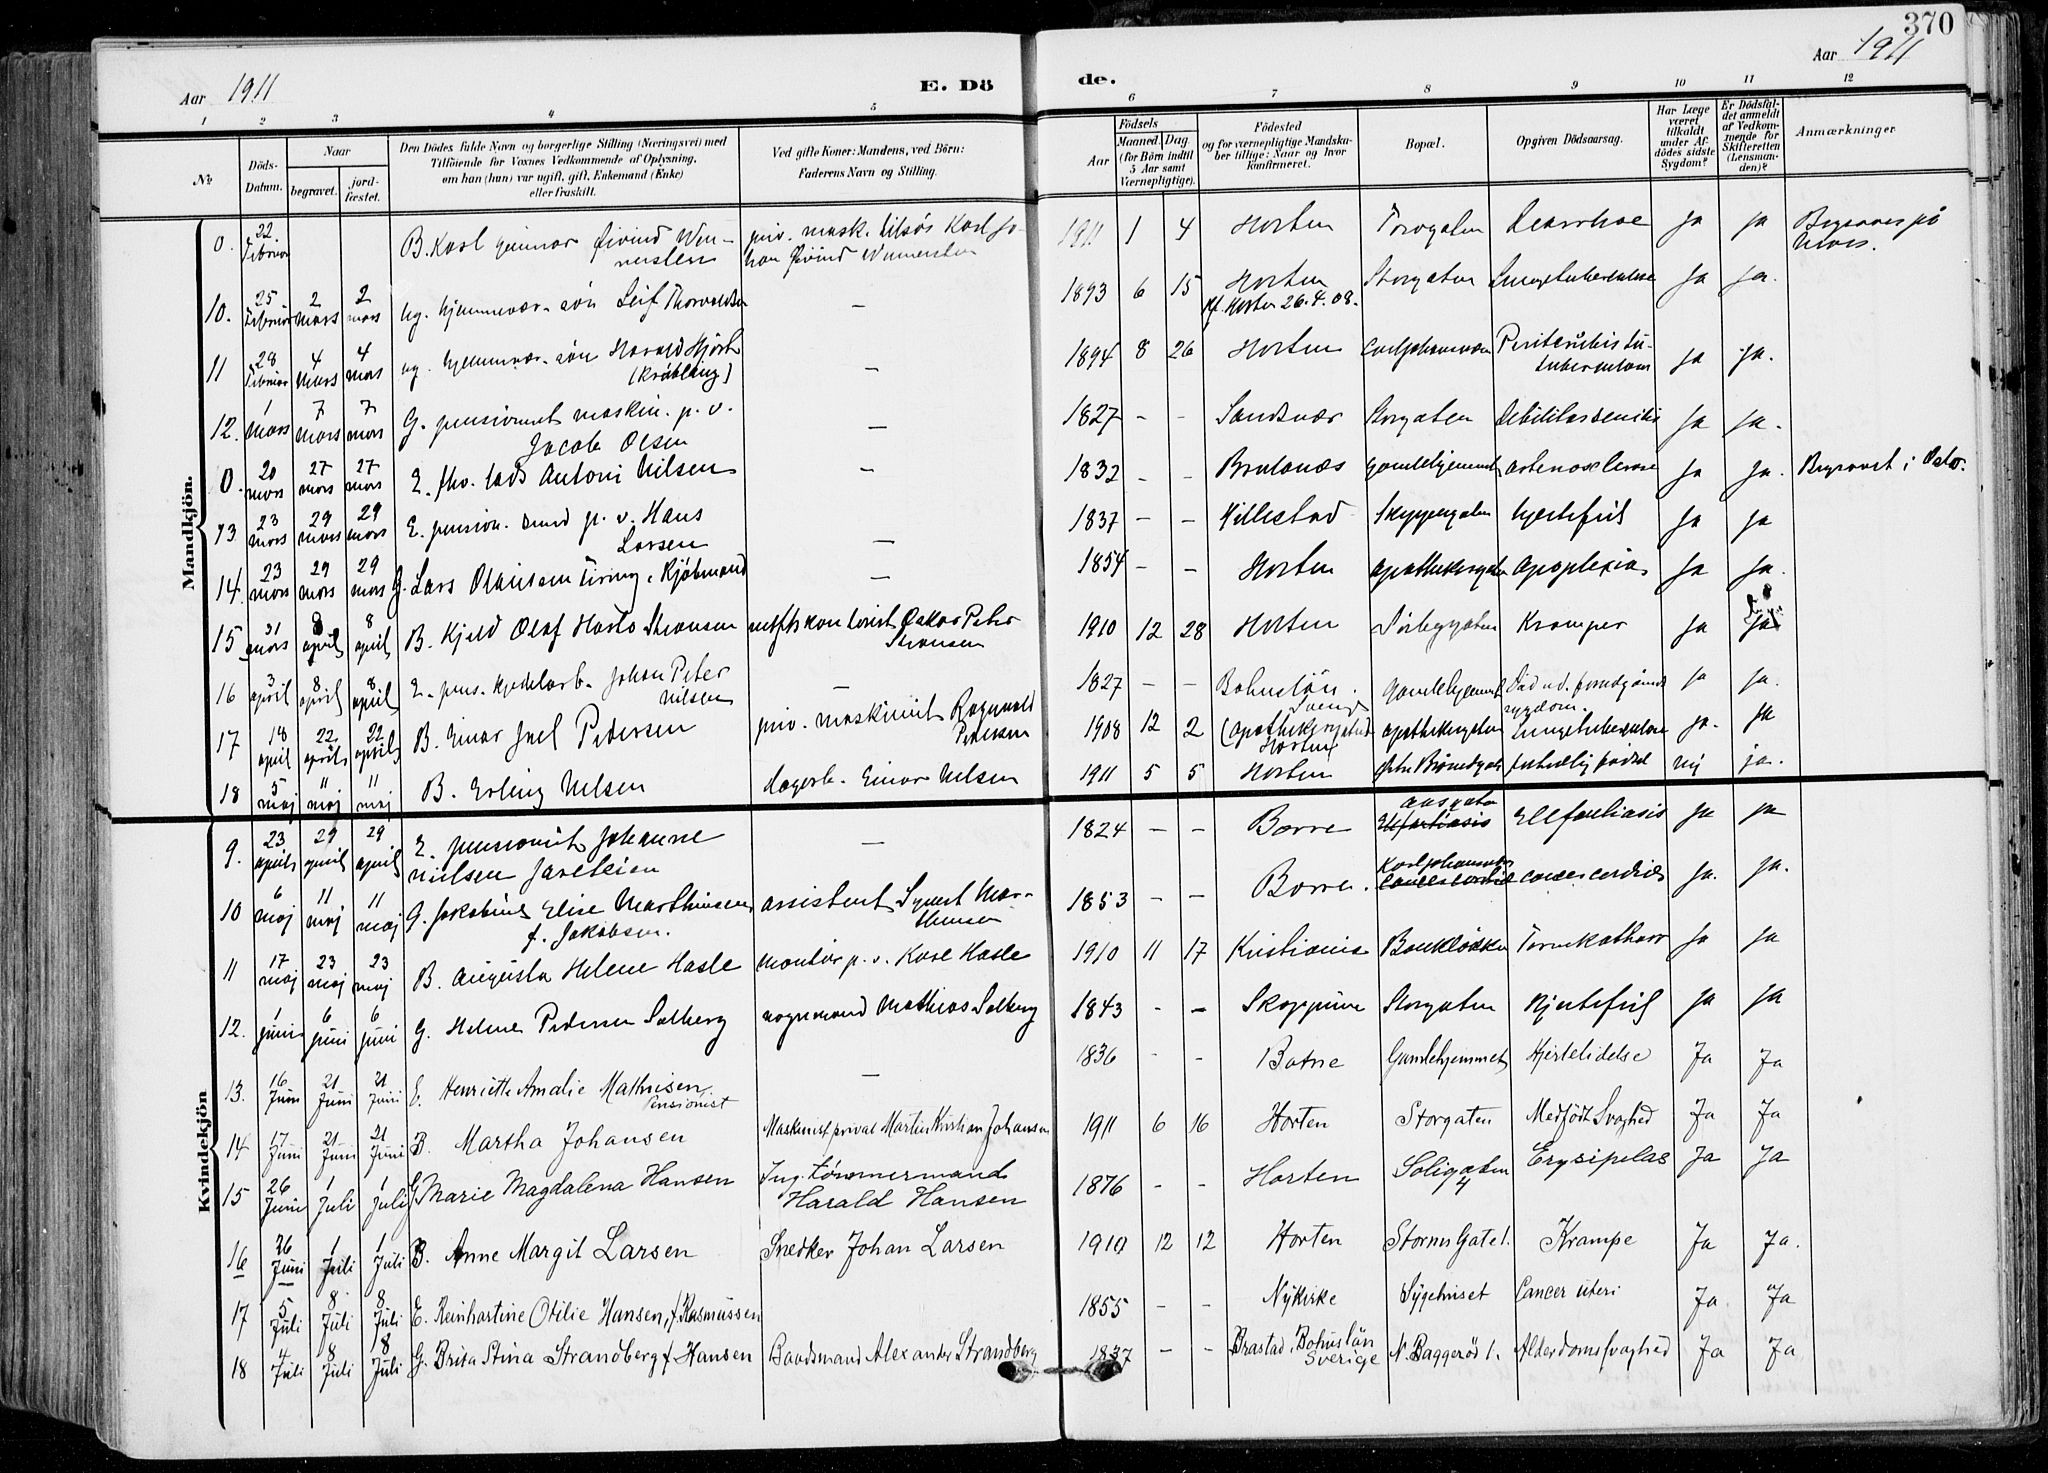 370
Aar 1911
E. Dö
de.
Aar 1911
1 2 3 4 5 6 7 8 9 10 11 12
№
Döds-Datum.
Naar
begravet.
jord-fæstet.
Den Dödes fulde Navn og borgerlige Stilling (Næringsvei) med
Tilföiende for Voxnes Vedkommende af Oplysning,
om han (hun) var ugift, gift, Enkemand (Enke)
eller fraskilt.
Ved gifte Koner: Mandens, ved Börn:
Faderens Navn og Stilling.
Födsels
Aar
Maaned. Dag
(for Börn indtil
5 Aar samt
Værnepligtige).
Födested
og for værnepligtige Mandska-
ber tillige: Naar og hvor
konfirmeret.
Bopæl.
Opgiven Dödsaarsag.
Har Læge
været
tilkaldt
under Af-
dödes sidste
Sygdom?
Er Dödsfal-
det anmeldt
af Vedkom-
mende for
Skifteretten
(Lensman-
den)?
Anmærkninger
Mandkjön.
0. 22 Februar B. Karl Gunnar Øivind Wen- priv. mask. Karl Jo- 1911 1 4 Horten Torvgaten Diarrhoe Ja Ja
han Øivind
10. 25 Februar 2 mars 2 mars ug. hjemmevær. søn Leif Thorvaldsen — 1893 6 15 Horten Storgaten Lungetuberkulose Ja Ja.
Kf. Horten 26.4.08.
11 28 Februar 4 mars 4 mars ug. hjemmevær. søn Harald Hjort — 1894 8 26 Horten Ja Ja.
12. 1 mars 7 mars 7 mars G. pensionert maskin. p. v. — 1827 - - Sandsvær Storgaten Debilitas senilis Ja Ja.
Jacob Olsen
0. 20 mars 27 mars 27 mars E. fhv. Antoni Nilsen — 1832 - - Gamlehjemmet Ja Ja. Begravet i Oslo.
13 23 mars 29 mars 29 mars E. pension. smed p. v. Hans — 1837 — — Hillestad Skippergaten Hjertefeil Ja Ja
Larsen
14. 23 mars 29 mars 29 mars G. Lars Olausen Kjøbmand — 1854 — — Horten Apothekergaten Apoplexia Ja Ja.
15 31 mars 8 april 8 april B. Kjeld Olaf Haslo Oskar Peter 1910 12 28 Horten Kramper Ja Ja
16 3 april 8 april 8 april E. pens. kjedelarb. Johan Peter — 1827 — — Bohuslän. Gamlehjemmet Ja Ja.
Nilsen Sverig sygdom.
17 18 april 22 april 22 april B. Einar Juel Petersen priv. maskinist Ragnvald 1908 12 2 (Apothekergaten Apothekergaten Lungetuberkulose Ja. Ja
Pedersen Horten)
18 5 maj 11 maj 11 maj B. Erling Nilsen dagarb. Einar Nilsen 1911 5 5 Horten nej ja.
Kvindekjön
9. 23 april 29 april 29 april E. pensionist Johanne — 1824 — — Borre Elefantiasis Ja Ja
Nielsen
10 6 maj 11 maj 11 maj G. Jakobine Elise Marthinsen assistent Mar- 1853 - - Borre. Karljohansvern Ja. Ja.
f. Jakobsen. thinsen
11 17 maj 23 maj 23 maj B. Augusta Helene Hasle montør p. v. Karl Hasle 1910 11 17 Kristiania Bankløkken Tarmkatharr Ja Ja
12. 1 juni 6 juni 6 juni G. Helene Pedersen Solberg vognmand Mathias Solberg 1843 - - Skoppum Storgaten Hjertefeil Ja Ja
13. 16 Juni 21 Juni 21 Juni E. Henriette Amalie Mathisen — 1836 - - Botne Gamlehjemmet Hjertelidelse Ja Ja
Pensionist
14 17 Juni 21 Juni 21 Juni B. Martha Johansen Maskinist privat Martin Kristian Johansen 1911 6 16 Horten Storgaten Medfödt Svaghed Ja Ja
15 26 Juni 1 Juli 1 Juli G. Marie Magdalena Hansen Tømmermand 1876 - - Horten Soligaten 4 Erysipelas Ja Ja
Harald Hansen
16 26 Juni 1 Juli 1 Juli B. Anne Margit Larsen Snedker Johan Larsen 1910 12 12 Horten Storms Gate 1. Krampe Ja Ja.
17 5 Juli 8 Juli 8 Juli E. Reinhartine Otilie Hansen, f. Rasmussen 1855 - - Nykirke Sygehuset Cancer uteri Ja Ja
18 4 Juli 8 Juli 8 Juli G. Brita Stina Strandberg f Hansen Baadsmand Alexander Strandberg 1837 - - Brastad, Bohuslän N. Baggerød 1. Alderdomssvaghed Ja Ja
Sverige